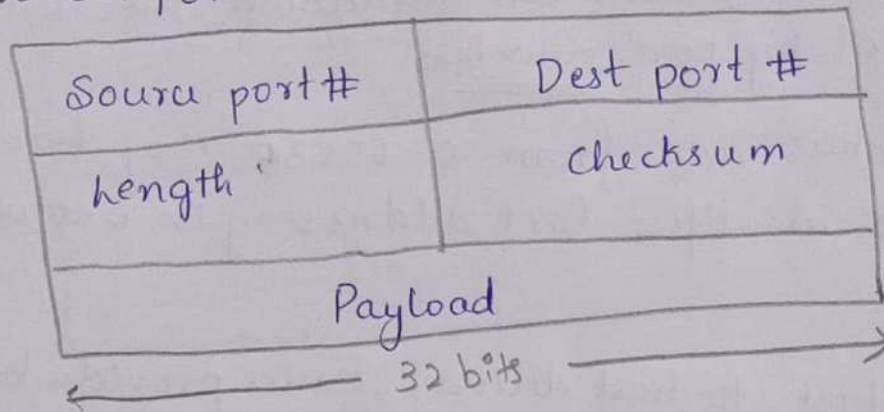 Source port # Dest port #
Length checksum
Payload
32 bits